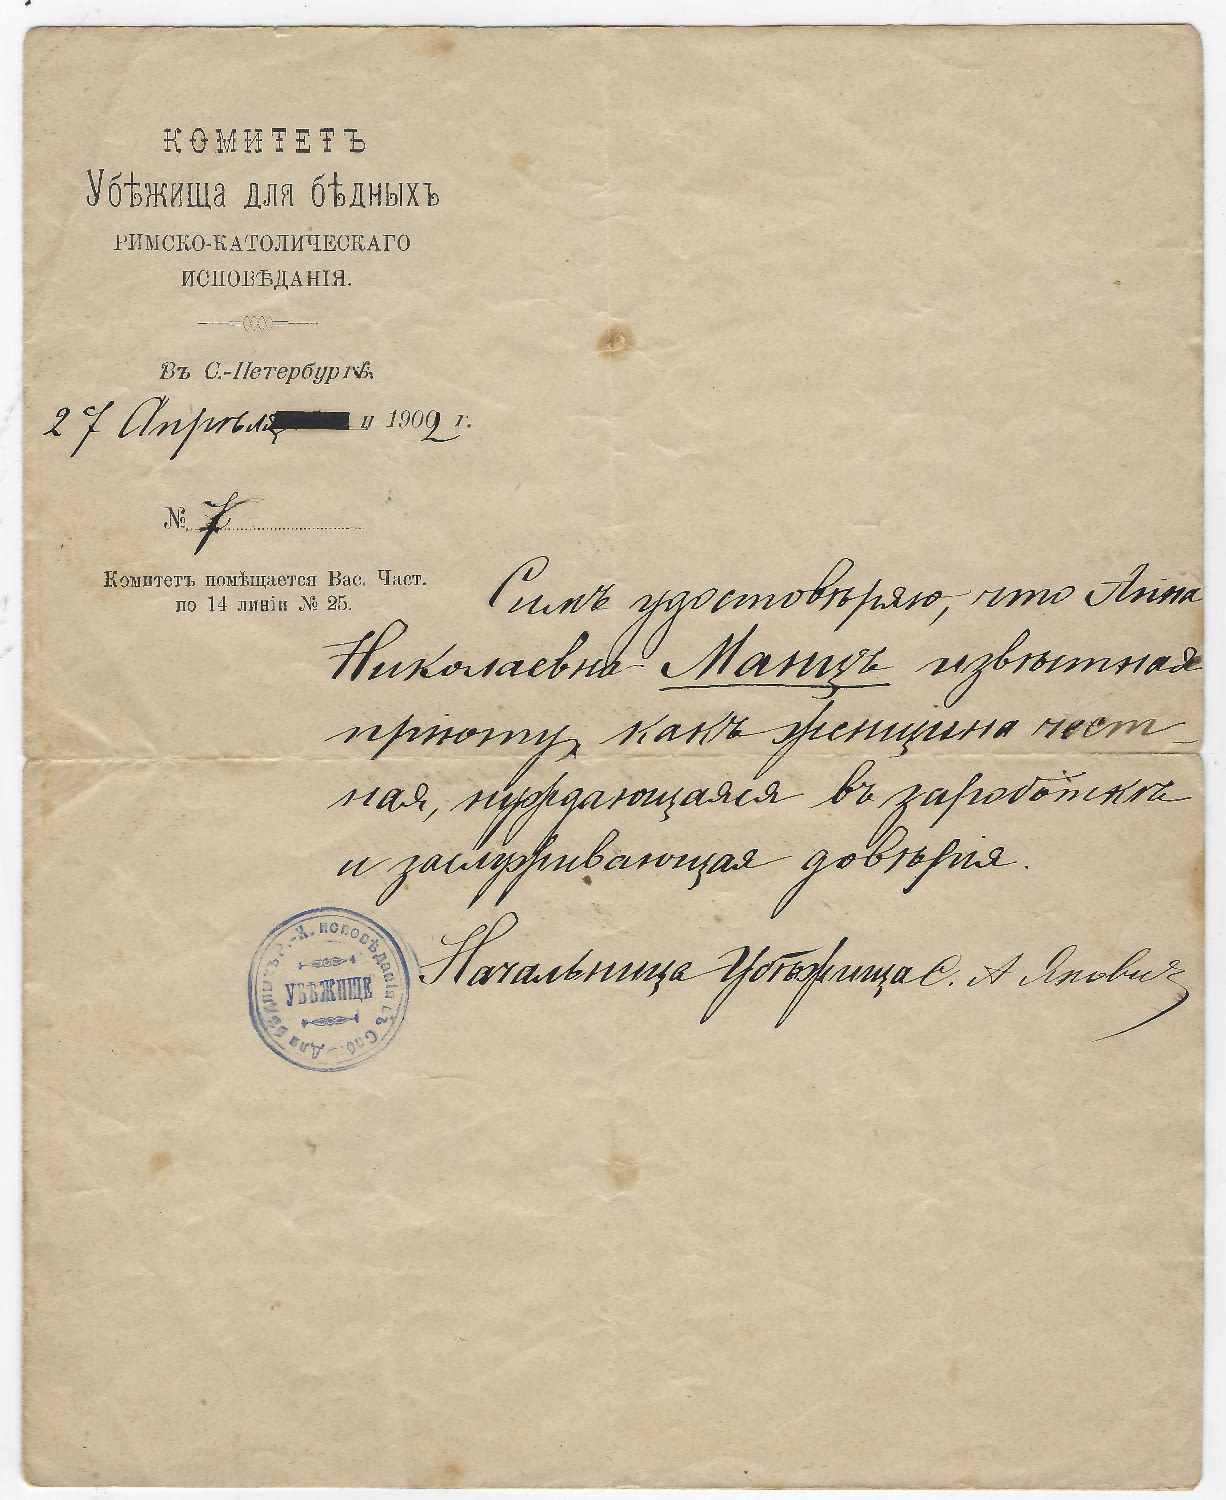 КОМИТЕТЪ
Убѣжища для бѣдныхъ
РИМСКО-КАТОЛИЧЕСКАГО
ИСПОВѢДАНІЯ.
Въ С.-Петербургѣ.
27 Апрѣля 1902 г.
№ 7
Комитетъ помѣщается Вас. Част.
по 14 линіи № 25.
Симъ удостовѣряю, что Анна
Николаевна Манцъ извѣстная
пріюту, какъ женщина чест-
ная, нуждающаяся въ заработкѣ
и заслуживающая довѣрія.
Начальница Убѣжища С. А Яковичъ
Для бѣдныхъ Р.-К. исповѣданія въ Спб.
УБѢЖИЩЕ